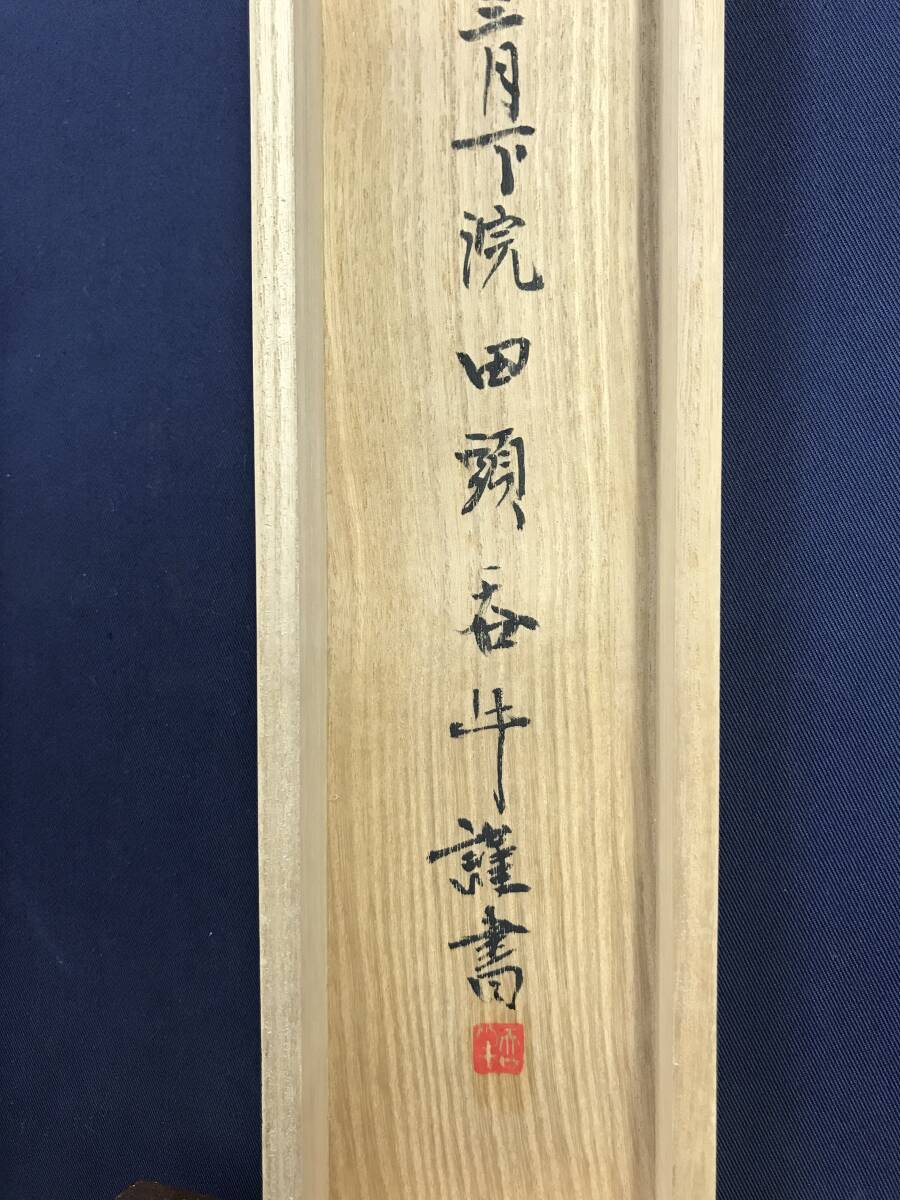 三月下浣田頭呑牛謹書
呑牛